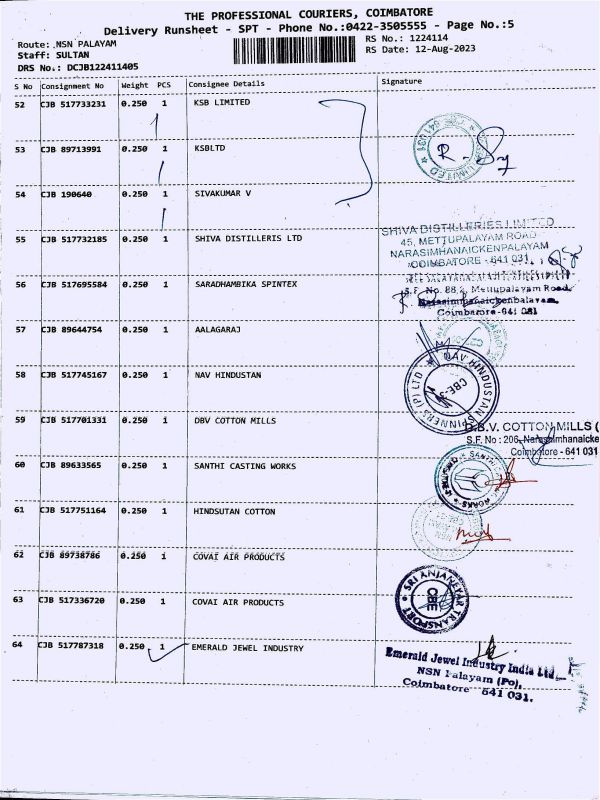 THE PROFESSIONAL COURIERS, COIMBATORE
Delivery Runsheet - SPT - Phone No.:0422-3505555 - Page No.:5
Route: NSN PALAYAM
Staff: SULTAN
DRS No.: DCJB122411405
RS No.: 1224114
RS Date: 12-Aug-2023
S No Consignment No Weight PCS Consignee Details Signature
52 CJB 517733231 0.250 1 KSB LIMITED
53 CJB 89713991 0.250 1 KSBLTD
54 CJB 190640 0.250 1 SIVAKUMAR V
55 CJB 517732185 0.250 1 SHIVA DISTILLERIS LTD
SHIVA DISTILLERIES LIMITED
45, METTUPALAYAM ROAD
NARASIMHANAICKENPALAYAM
COIMBATORE - 641 031.
56 CJB 517695584 0.250 1 SARADHAMBIKA SPINTEX
S.F. No. 88,2, Mettupalayam Road,
Narasimhanaickenbalayam,
Coimbatore-641 031
57 CJB 89644754 0.250 1 AALAGARAJ
58 CJB 517745167 0.250 1 NAV HINDUSTAN
NAV HINDUSTAN SPINNERS (P) LTD
CBE-3
59 CJB 517701331 0.250 1 DBV COTTON MILLS
D.B.V. COTTON MILLS (
S.F. No : 206, Narasimhanaicke
Coimbatore - 641 031
60 CJB 89633565 0.250 1 SANTHI CASTING WORKS
SANTHI CASTING WORKS
61 CJB 517751164 0.250 1 HINDSUTAN COTTON
62 CJB 89738786 0.250 1 COVAI AIR PRODUCTS
63 CJB 517336720 0.250 1 COVAI AIR PRODUCTS
SRI ANJANEYAR TRANSPORT
CBE
64 CJB 517787318 0.250 1 EMERALD JEWEL INDUSTRY
Emerald Jewel Industry India Ltd.,
NSN Palayam (Po),
Coimbatore - 641 031.